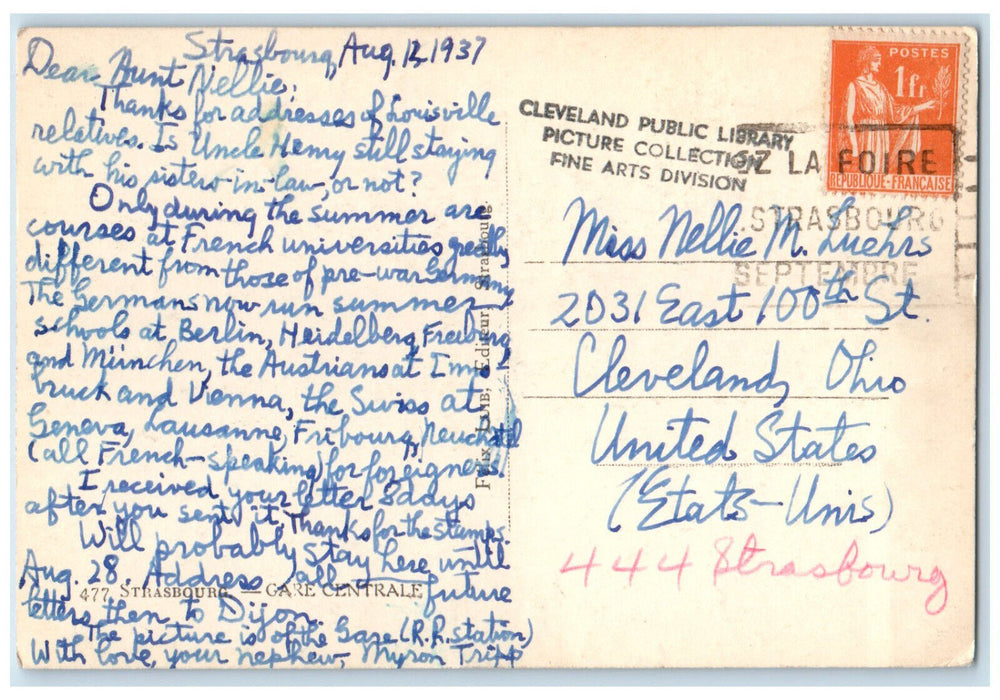 Strasbourg, Aug. 12, 1937
Dear Aunt Nellie:
Thanks for addresses of Louisville
relatives. Is Uncle Henry still staying
with his sister-in-law, or not?
Only during the summer are
courses at French universities greatly
different from those of pre-war Germany.
The Germans now run summer
schools at Berlin, Heidelberg, Freiburg
and München, the Austrians at Inns-
bruck and Vienna, the Swiss at
Geneva, Lausanne, Fribourg, Neuchâtel
(all French-speaking) for foreigners.
I received your letter 8 days
after you sent it. Thanks for the stamps.
Will probably stay here until
Aug. 28. Address all future
letters then to Dijon.
The picture is of the Gare (R.R. station)
With love, your nephew, Myron Tripp
477 STRASBOURG. — GARE CENTRALE
Editeur, Strasbourg
CLEVELAND PUBLIC LIBRARY
PICTURE COLLECTION
FINE ARTS DIVISION
POSTES
1fr
REPUBLIQUE-FRANCAISE
EZ LA FOIRE
STRASBOURG
SEPTEMBRE
Miss Nellie M. Luehrs
2031 East 100th St.
Cleveland, Ohio
United States
(Etats-Unis)
444 Strasbourg